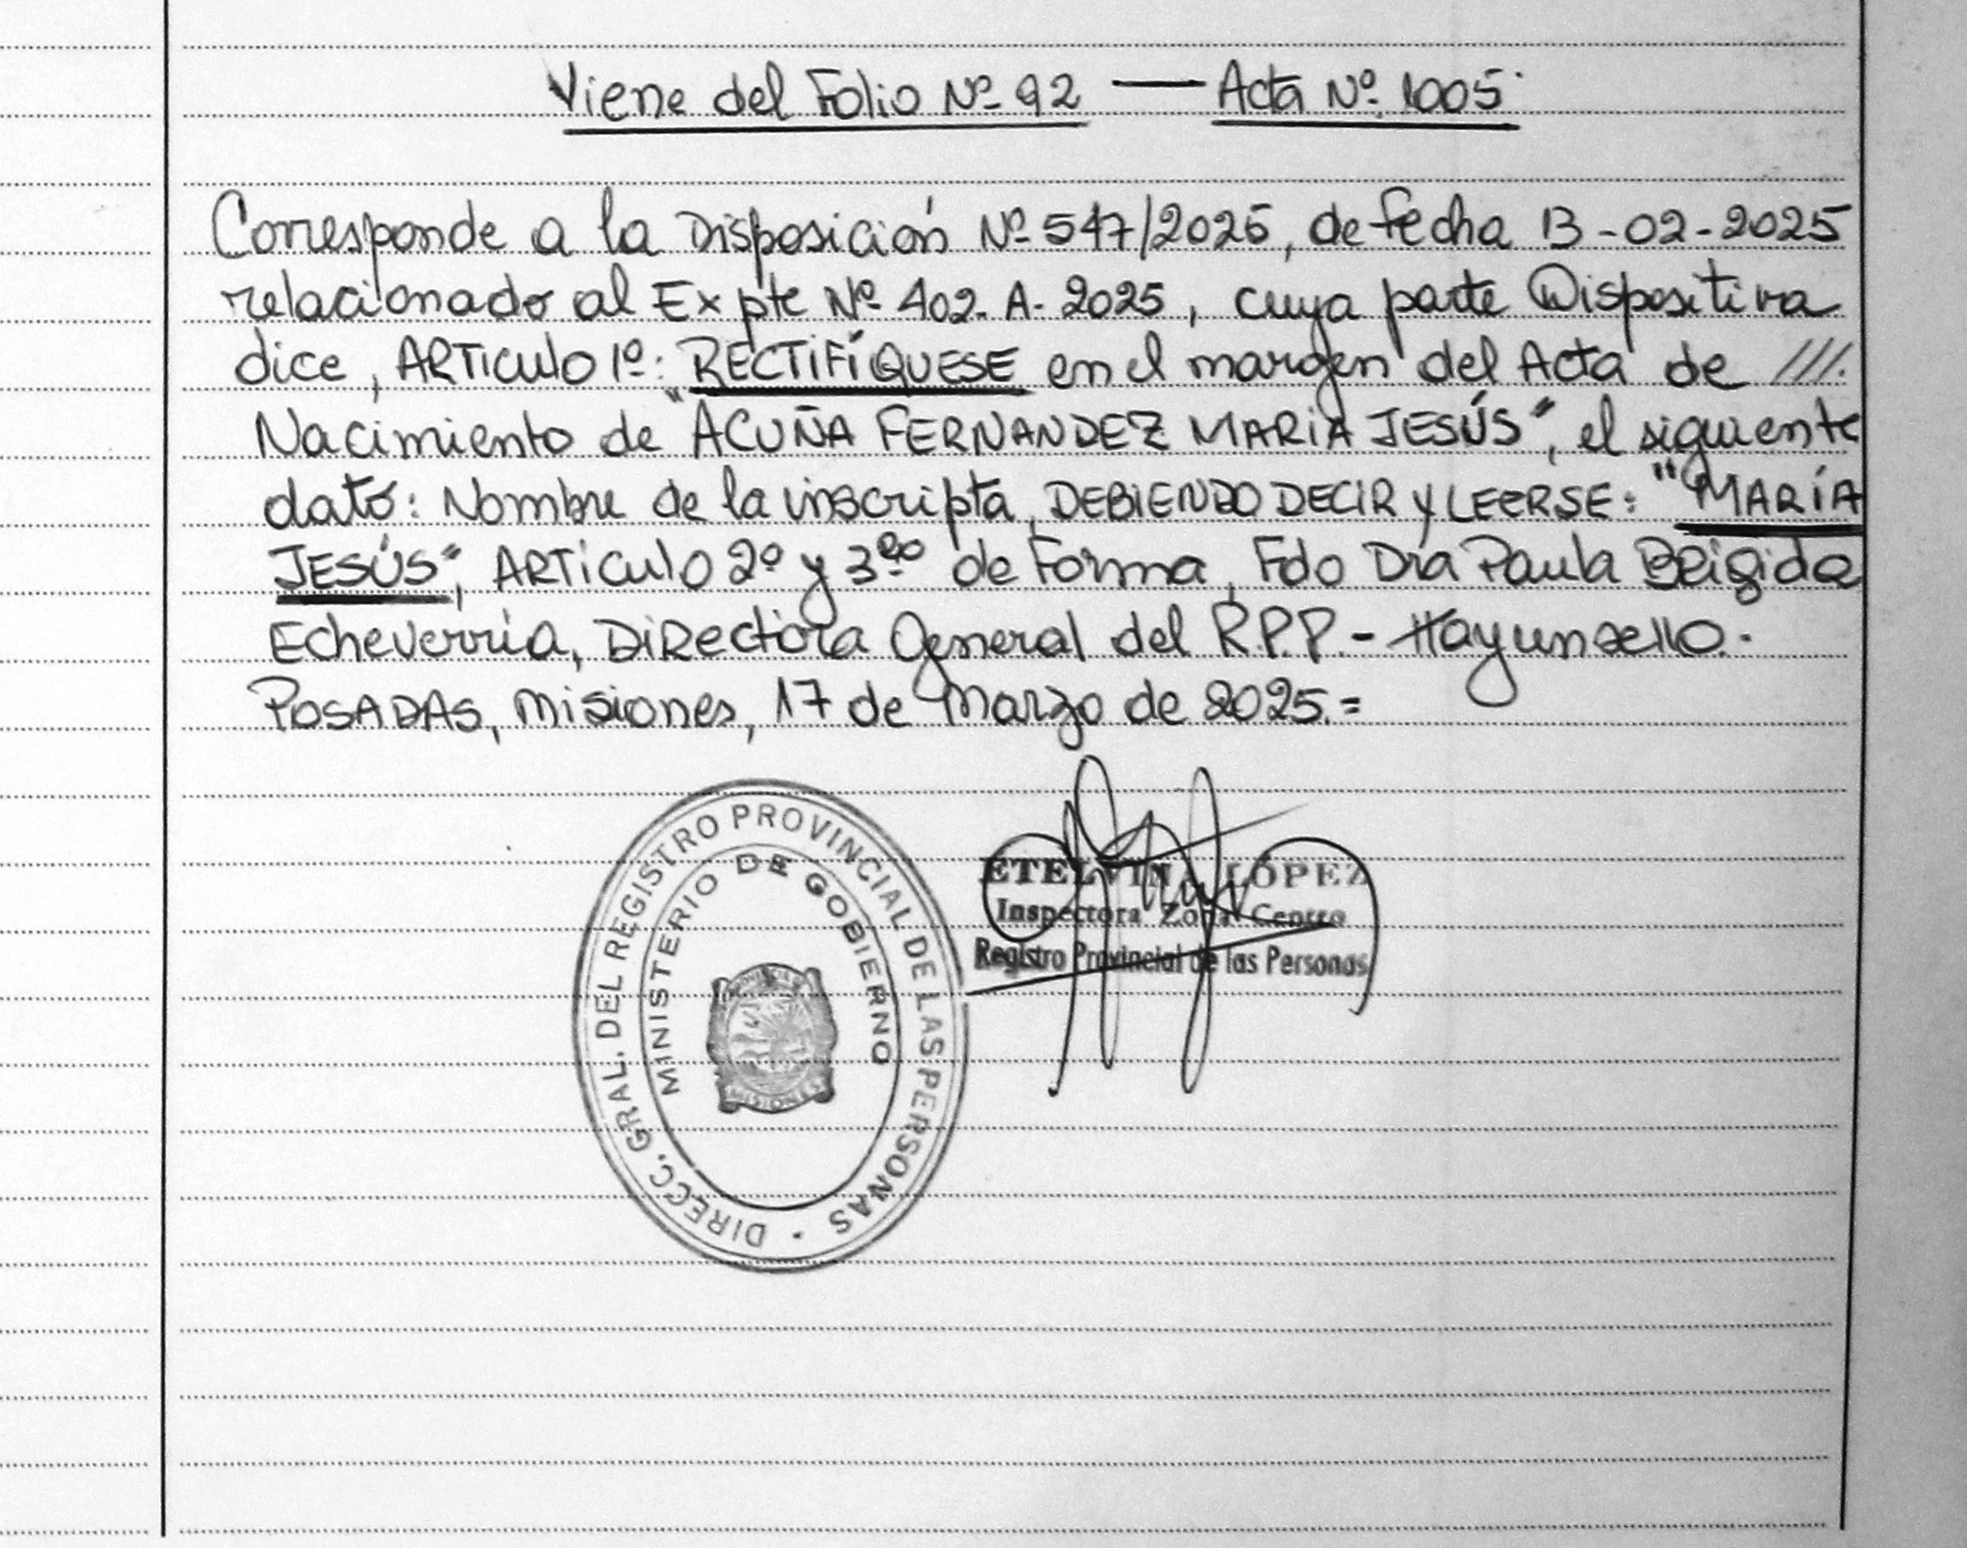 Viene del Folio Nº 92 — Acta Nº 1005.
Corresponde a la Disposición Nº 547/2025, de fecha 13-02-2025
relacionado al Expte Nº 402-A-2025, cuya parte Dispositiva
dice, ARTICULO 1º: RECTIFÍQUESE en el margen del Acta de ///.
Nacimiento de "ACUÑA FERNANDEZ MARIA JESÚS", el siguiente
dato: Nombre de la inscripta, DEBIENDO DECIR Y LEERSE: "MARÍA
JESÚS", ARTICULO 2º y 3ro de Forma, Fdo Dra Paula Brigida
Echeverria, Directora General del R.P.P.- Hay un sello.-
POSADAS, Misiones, 17 de Marzo de 2025.=
DIRECC. GRAL. DEL REGISTRO PROVINCIAL DE LAS PERSONAS
MINISTERIO DE GOBIERNO
PROVINCIA
MISIONES
ETELVINA LÓPEZ
Inspectora Zona Centro
Registro Provincial de las Personas